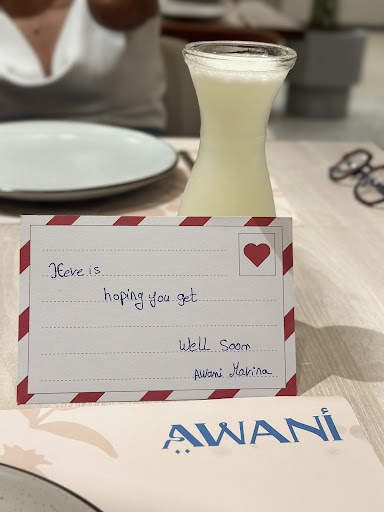 Here is
hoping you get
Well Soon
Awani Marina
AWANI